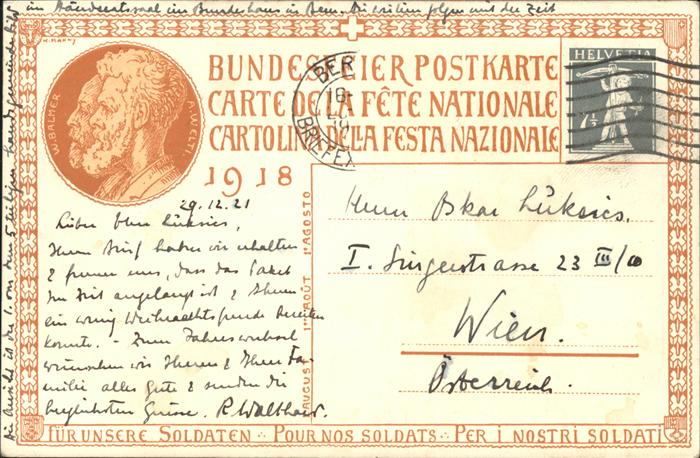 im Ständeratssaal im Bundeshaus in Bern. Die weitern folgen mit der Zeit
Die Ansicht ist der 1. von den 5 teiligen Landsgemeinde
BUNDESFEIERPOSTKARTE
CARTE DE LA FÊTE NATIONALE
CARTOLINA DELLA FESTA NAZIONALE
1918
W. BALMER
A. WELTI
HELVETIA
7½
BER
BRIEFEX
AUGUST 1er AOÛT 1º AGOSTO
29.12.21
Lieber Herr Lüksics,
Ihren Brief haben wir erhalten
& freuen uns, dass das Paket
zur Zeit angelangt ist & Ihnen
ein wenig Weihnachtsfreude bereiten
konnte. - Zum Jahreswechsel
wünschen wir Ihnen & Ihrer Fa-
milie alles Gute & senden die
herzlichsten Grüsse.
Herrn Oskar Lüksics.
I. Singerstrasse 23 III/10
Wien.
Österreich.
FÜR UNSERE SOLDATEN · POUR NOS SOLDATS · PER I NOSTRI SOLDATI